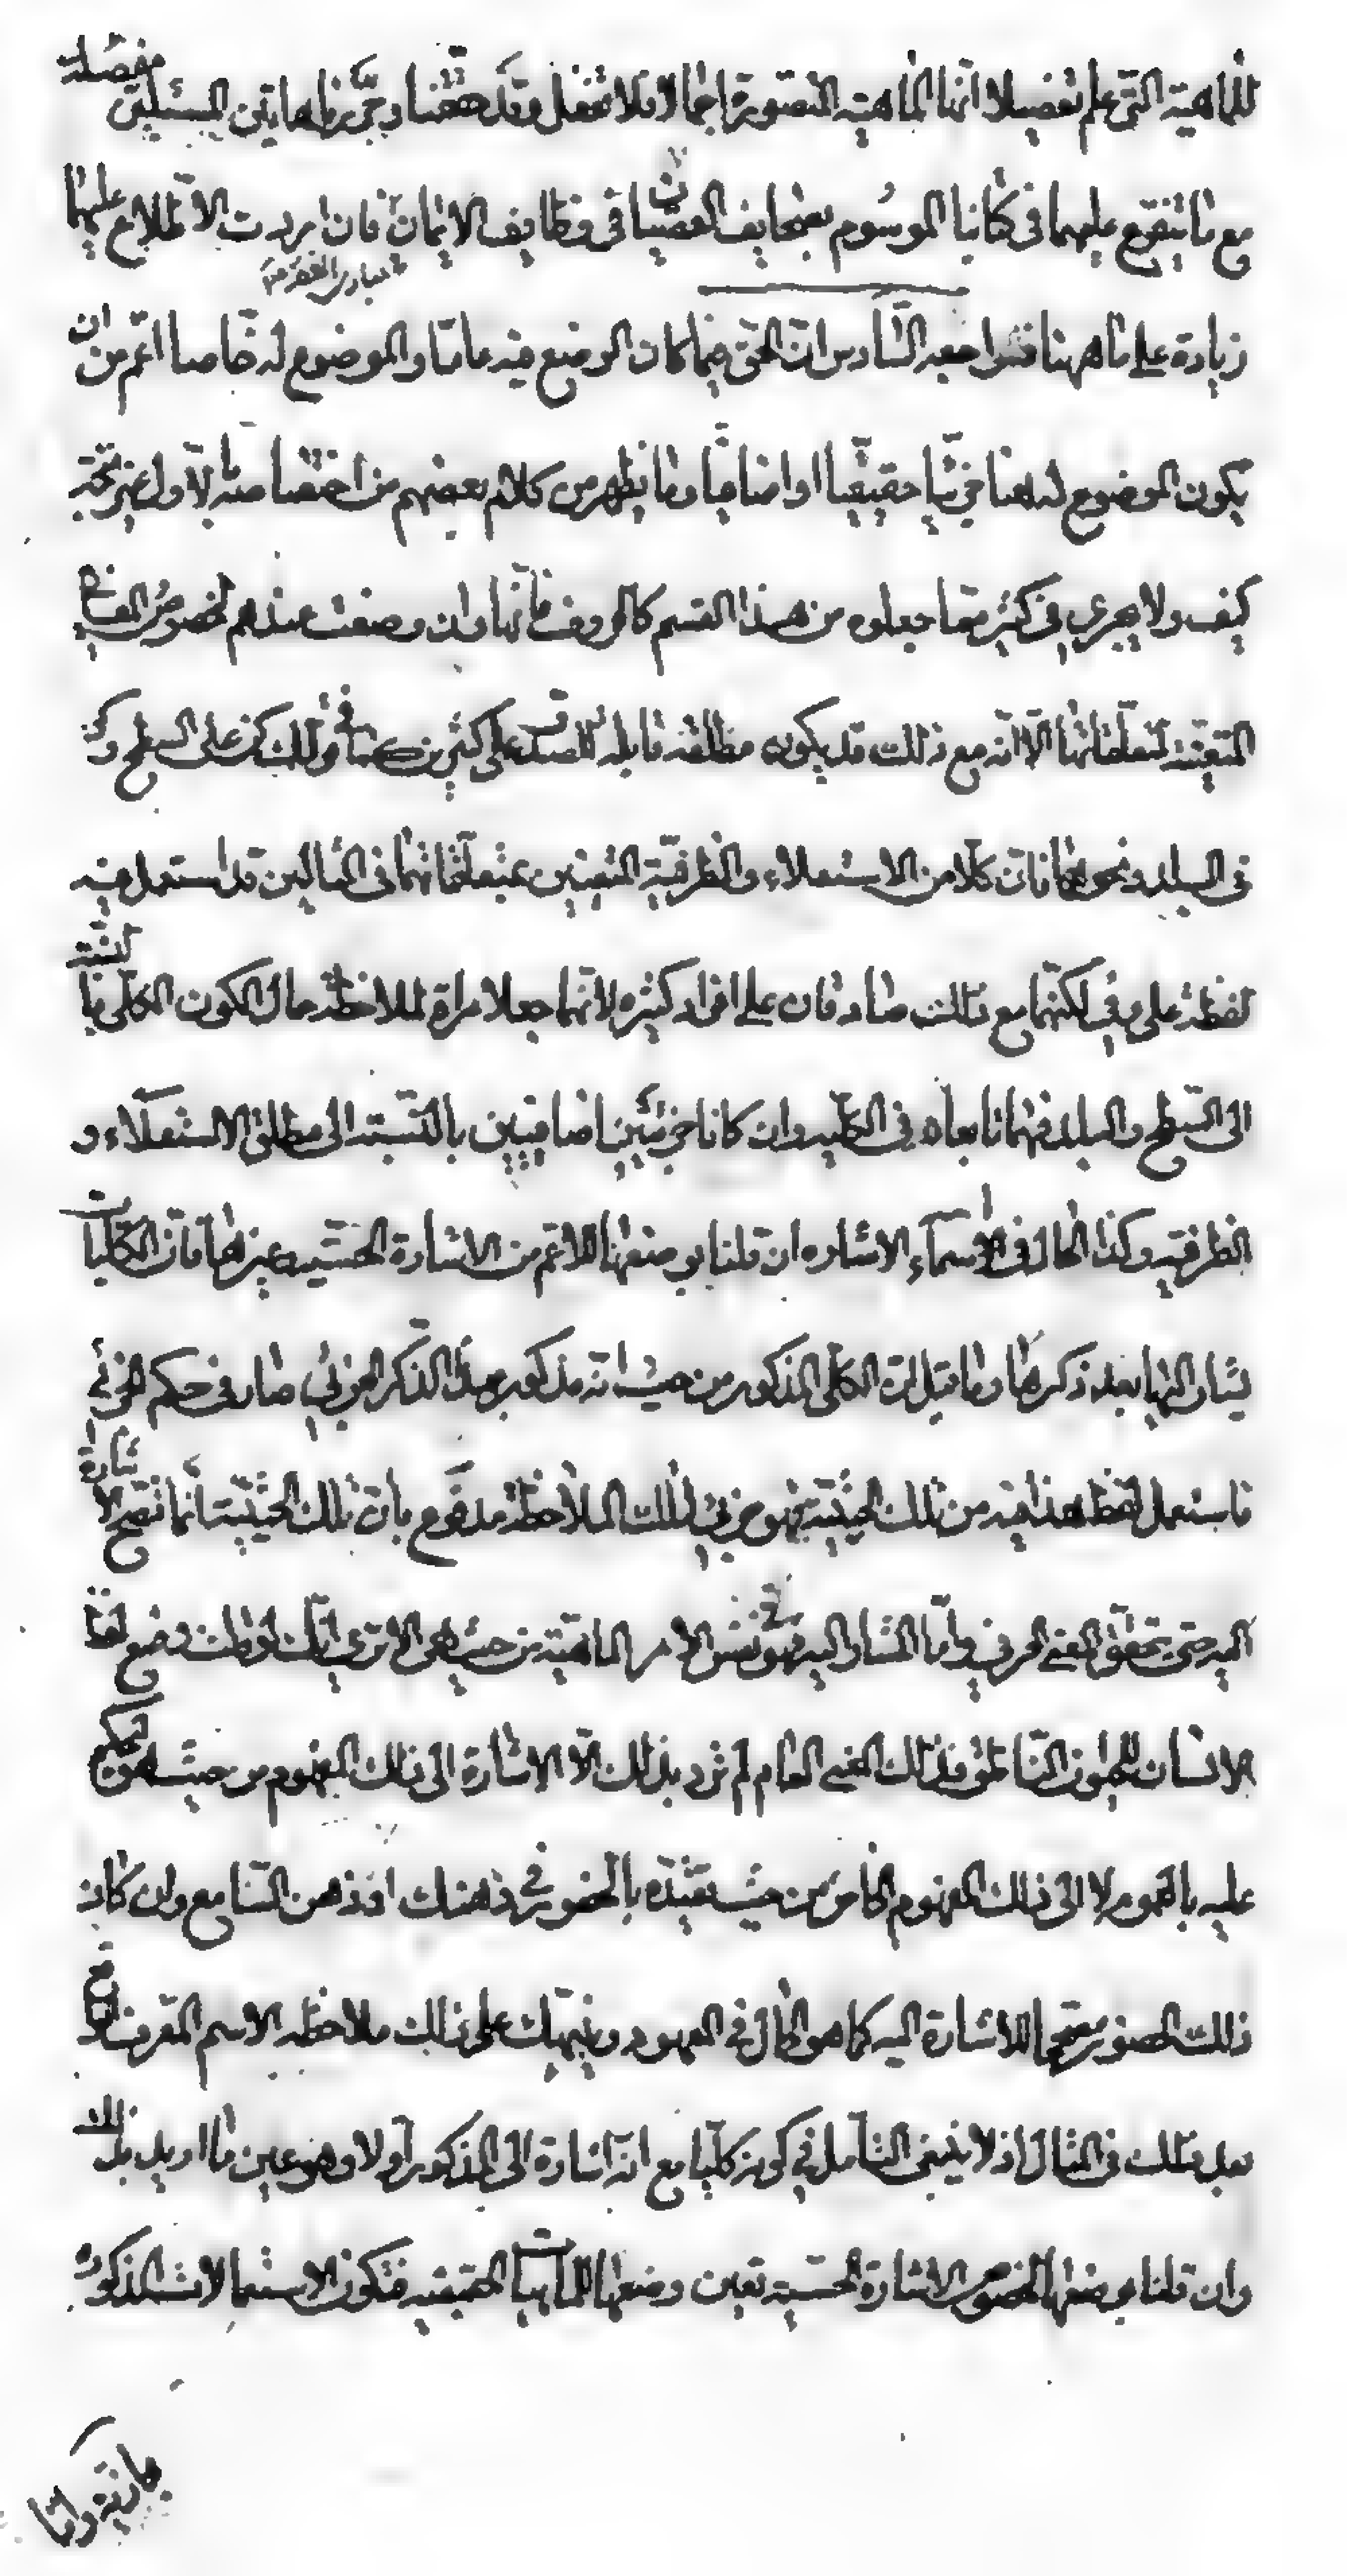 للماهية التي علم تفصيلا انها الماهية المتصورة اجمالا فلا تغفل وقد حققنا وجوه هاتين المسئلتين مفصلة
مع ما يتفرع عليهما في كتابنا الموسوم بصحايف العصيان في وظايف الايمان فان اردت الاطلاع عليها
زيادة على ما ههنا فراجعه السادس ان الحق فيما كان الوضع فيه عاما والموضوع له خاصا اعم من ان
يكون الموضوع له هنا جزئيا حقيقيا او اضافيا وما يظهر من كلام بعضهم من اختصاصه بالاول غير متجه
كيف ولا يجري في كثير مما جعلوه من هذا القسم كالحروف فانها وان وضعت عندهم لخصوص المعاني
المتعينة بمتعلقاتها الا انه مع ذلك قد يكون مطلقه قابلة للصدق على كثيرين كما في قولك كن على السطح وكن
في البلد ونحوهما فان كلا من الاستعلاء والظرفية المتعينين بمتعلقاتهما في المثالين قد استعمل فيه
لفظة على وفي لكنهما مع ذلك صادقان على افراد كثيره لانهما جعلا مراة لملاحظة حال الكون الكلي بالنسبة
الى السطح والبلد فهما تابعان له في الكلية وان كانا جزئيين اضافيين بالنسبة الى مطلق الاستعلاء و
الظرفية وكذا الحال في اسماء الاشاره ان قلنا بوضعها للاعم من الاشارة الحسية وغيرها فان الكليات
يشار اليها بعد ذكرها وما قيل ان الكلي المذكور من حيث انه مذكور بهذا الذكر الجزئي صار في حكم الجزئي
فاستعمل لفظ هذا فيه من تلك الحيثية فهو جزئي بتلك الملاحظة مدفوع بان تلك الحيثية انما تصحح الاشارة
اليه حتى يتحقق المعنى الحرفي واما المشار اليه فهو نفس الامر الماهية من حيث هي الا ترى انك لو قلت وضع لفظ
الانسان للحيوان الناطق وذلك المعنى العام لم ترد بذلك الا الاشارة الى ذلك المفهوم من حيث هو ليحكم
عليه بالعموم لا الى ذلك المفهوم الخاص من حيث تقيده بالحضور في ذهنك او ذهن السامع وان كان
ذلك الحضور مصححا للاشارة اليه كما هو الحال في المعهود وينبهك على ذلك ملاحظة الاسم المعرف الواقع
بعد ذلك في المثال اذ لا ينبغي التامل في كونه كليا مع انه اشارة الى المذكور اولا وهو عين ما اريد بذلك
وان قلنا بوضعها لخصوص الاشارة الحسية تعين وضعها للماهيات الحقيقية فتكون الاستعمالات المذكورة